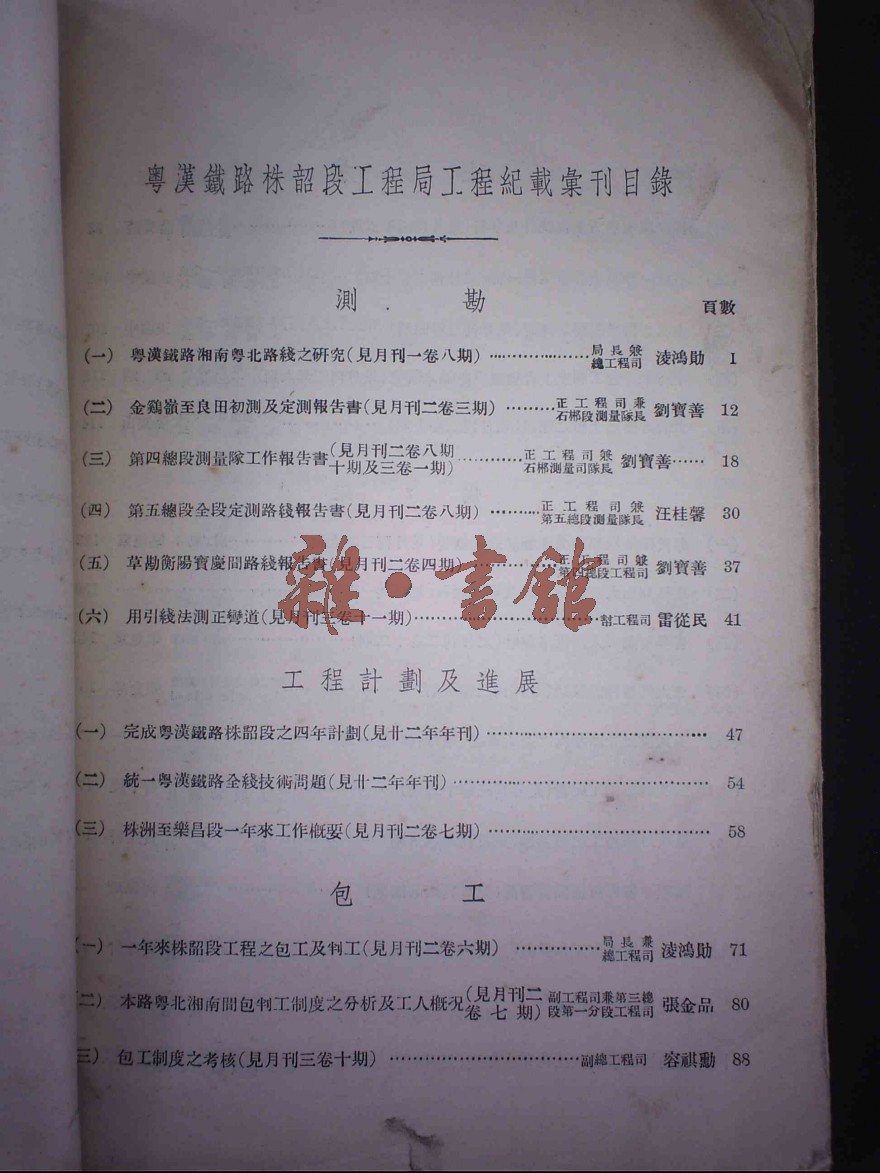 粵漢鐵路株韶段工程局工程紀載彙刊目錄
測 勘 頁數
(一) 粵漢鐵路湘南粵北路綫之研究(見月刊一卷八期) 局長兼總工程司 淩鴻勛 1
(二) 金鷄嶺至良田初測及定測報告書(見月刊二卷三期) 正工程司兼石郴段測量隊長 劉寶善 12
(三) 第四總段測量隊工作報告書(見月刊二卷八期十期及三卷一期) 正工程司兼石郴測量司隊長 劉寶善 18
(四) 第五總段全段定測路綫報告書(見月刊二卷八期) 正工程司兼第五總段測量隊長 汪桂馨 30
(五) 草勘衡陽寶慶間路綫報告書(見月刊二卷四期) 正工程司兼第四總段工程司 劉寶善 37
(六) 用引綫法測正彎道(見月刊三卷十一期) 幫工程司 雷從民 41
工程計劃及進展
(一) 完成粵漢鐵路株韶段之四年計劃(見廿二年年刊) 47
(二) 統一粵漢鐵路全綫技術問題(見廿二年年刊) 54
(三) 株洲至樂昌段一年來工作概要(見月刊二卷七期) 58
包 工
(一) 一年來株韶段工程之包工及判工(見月刊二卷六期) 局長兼總工程司 淩鴻勛 71
(二) 本路粵北湘南間包判工制度之分析及工人概況(見月刊二卷七期) 副工程司兼第三總段第一分段工程司 張金品 80
(三) 包工制度之考核(見月刊三卷十期) 副總工程司 容祺勳 88
雜·書館